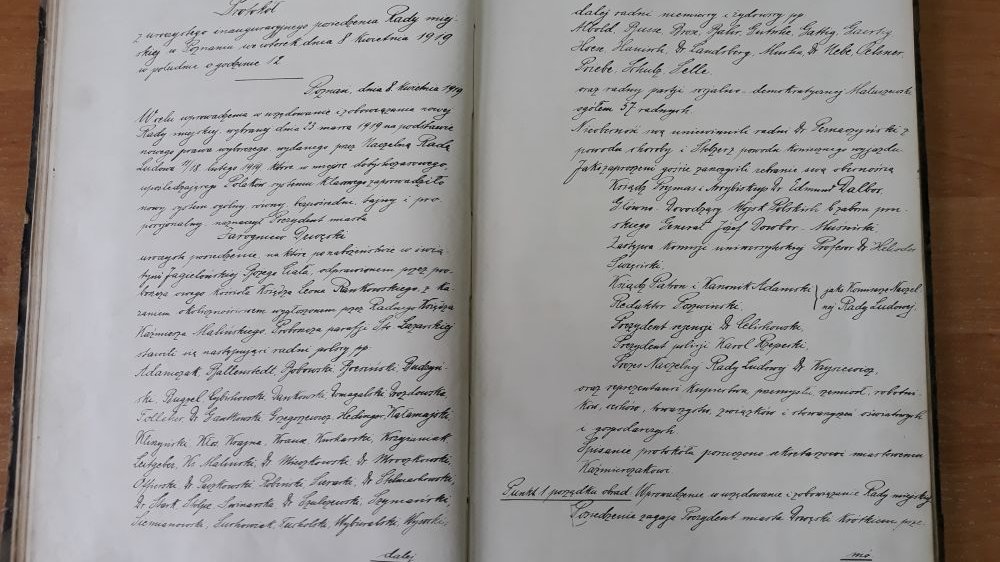 Protokół
z uroczystego inauguracyjnego posiedzenia Rady miej-
skiej w Poznaniu we wtorek dnia 8 kwietnia 1919
w południe o godzinie 12
Poznań, dnia 8. kwietnia 1919
W celu wprowadzenia w urzędowanie i zobowiązania nowej
Rady miejskiej wybranej dnia 23 marca 1919 na podstawie
nowego prawa wyborczego wydanego przez Naczelną Radę
Ludową /18. lutego 1919, które w miejsce dotychczasowego
upośledzającego Polaków systemu klasowego zaprowadziło
nowy system ogólny, równy, bezpośredni, tajny i pro-
porcjonalny, naznaczył Prezydent miasta
Jarogniew Drwęski
uroczyste posiedzenie, na które po nabożeństwie w świą-
tyni Jagiellońskiej Bożego Ciała, odprawionem przez pro-
boszcza owego kościoła Księdza Leona Rankowskiego, z ka-
zaniem okolicznościowem wygłoszonem przez Radnego Księdza
Kazimierza Malińskiego Proboszcza parafji Św. Łazarskiej
stawili się następujący radni polscy pp.
Adamczak, Ballenstedt, Bobowski, Brzeziński, Budzyń-
ski, Bugzel, Cybichowski, Dankowski, Domagalski, Drozdowska,
Dr Gantkowski, Grzegorzewicz, Hedinger, Kałamajski,
Kliszyński, Kłos, Krajna, Kraus, Kucharska, Krzyżaniak
Leitgeber, Ks. Maliński, Dr Mieczkowski, Dr Mroczkowski,
Offierski, Dr Paczkowski, Robiński, Sierawski, Dr Stelmachowski,
Dr Stark, Stelze, Świnarska, Dr Szulczewski, Szymański,
Suchomiak, Wybieralski, Wysocki,
dalej
dalej radni niemieccy i żydowscy pp.
Gutsche,
Hoen, Hanisch, Dr Landsberg, Dr Nebe,
Priebe, Schulz, Selle
oraz radny partji socjalno-demokratycznej Matuszewski
ogółem 57 radnych.
Nieobecność swą uniewinnili radni Dr z
powodu choroby i z powodu koniecznego wyjazdu.
Jako zaproszeni goście zaszczycili zebranie swą obecnością
Ksiądz Prymas i Arcybiskup Dr. Edmund Dalbor.
Główno Dowodzący Wojsk Polskich b. zaboru pru-
skiego Generał Józef Dowbor-Muśnicki
Zastępca Komisji uniwersyteckiej Profesor Dr. Heliodor
Święcicki
Ksiądz Patron i Kanonik Adamski } jako Komisarze Naczel-
Redaktor Poszwiński } nej Rady Ludowej.
Prezydent rejencji Dr Celichowski.
Prezydent policji Karol Rzepecki.
Prezes Naczelnej Rady Ludowej Dr Krysiewicz.
oraz reprezentanci kupiectwa, przemysłu, rzemiosł, robotni-
ków, cechów, towarzystw, związków i stowarzyszeń oświatowych
i gospodarczych.
Spisanie protokołu poruczono sekretarzowi miastowemu
Kaźmierczakowi.
Punkt 1 porządku obrad. Wprowadzenie w urzędowanie i zobowiązanie Rady miejskiej
Posiedzenie zagaja Prezydent miasta Drwęski krótkiem prze-
mó